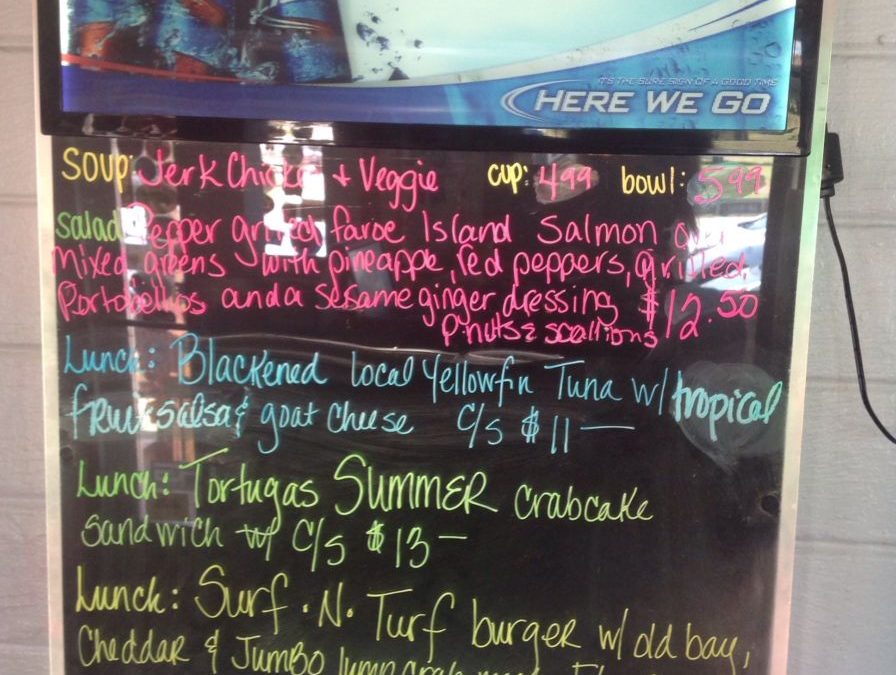 IT'S THE SURE SIGN OF A GOOD TIME
HERE WE GO
SOUP: Jerk Chicken + Veggie cup: 4.99 bowl: 5.99
Salad: Pepper grilled faroe Island Salmon over
Mixed greens with pineapple, red peppers, grilled
Portobellos and a sesame ginger dressing $12.50
P-nuts & scallions
Lunch: Blackened local Yellowfin Tuna w/ tropical
fruit salsa & goat cheese C/S $11 —
Lunch: Tortugas SUMMER crabcake
sandwich w/ C/S $13 —
Lunch: Surf · N · Turf burger w/ old bay,
Cheddar & Jumbo lump crab